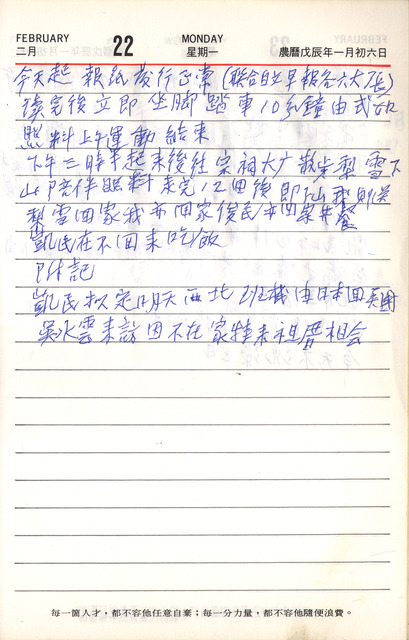 FEBRUARY 22 MONDAY
二月 星期一 農曆戊辰年一月初六日
今天起報紙發行正常(聯合自立早報各六大張)
讀完後立即坐脚踏車10分鐘由武如
照料上午運動結束
下午三時半起來後往宗祠大廣散步梨雪下
山陪伴照料走完12回後即仙聚則送
梨雪回家我亦回家俊民亦回家共餐
凱民在不回來吃飯
附記
凱民拟定明天西北班機由日本回美國
吳水雲來訪因不在家特來祖厝相会
每一箇人才,都不容他任意自棄;每一分力量,都不容他隨便浪費。